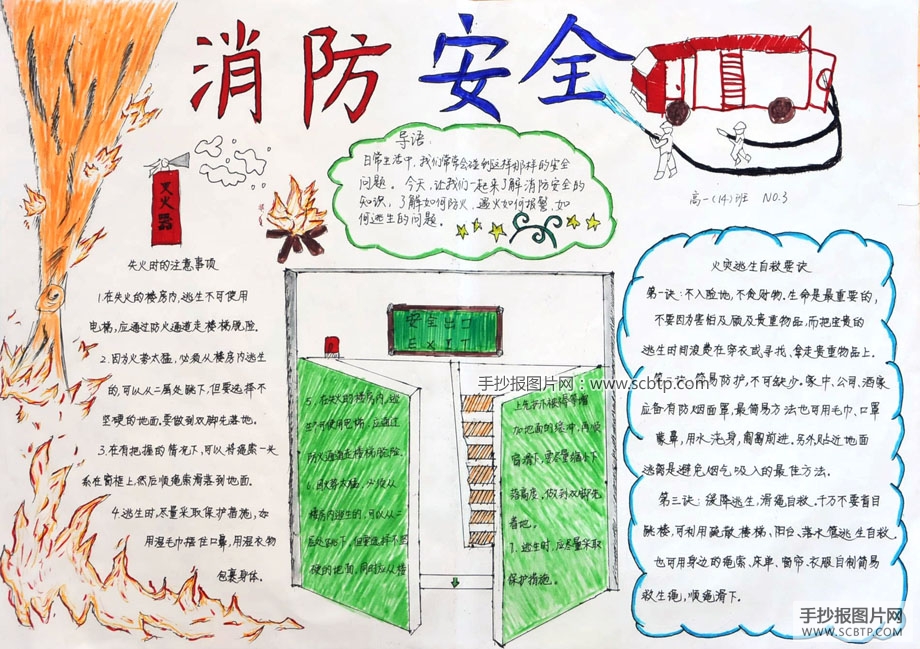 消防安全
导语:
日常生活中,我们常常会碰到这样那样的安全
问题。今天,让我们一起来了解消防安全的
知识,了解如何防火、遇火如何报警、如
何逃生的问题。
高一(14)班 NO.3
灭火器
失火时的注意事项
1.在失火的楼房内,逃生不可使用
电梯,应通过防火通道走楼梯脱险。
2.因火势太猛,必须从楼房内逃生
的,可以从二层处跳下,但要选择不
坚硬的地面,要做到双脚先落地。
3.在有把握的情况下,可以将绳索一头
系在窗框上,然后顺绳索滑落到地面。
4.逃生时,尽量采取保护措施,如
用湿毛巾捂住口鼻,用湿衣物
包裹身体。
安全出口
EXIT
5.在失火的楼房内,逃
生不可使用电梯,应通过
防火通道走楼梯脱险。
6.因火势太猛,必须从
楼房内逃生的,可以从二
层处跳下,但要选择不坚
硬的地面,同时应从楼
上先
加地面的缓冲,再顺
窗滑下,要尽量缩小下
落高度,做到双脚先
着地。
7.逃生时,应尽量采取
保护措施。
火灾逃生自救要诀
第一诀:不入险地,不贪财物。生命是最重要的,
不要因为害怕及顾及贵重物品,而把宝贵的
逃生时间浪费在穿衣或寻找、拿走贵重物品上。
第二诀:简易防护,不可缺少。家中、公司、酒家
应备有防烟面罩,最简易方法也可用毛巾、口罩
蒙鼻,用水浇身,匍匐前进。另外贴近地面
逃离是避免烟气吸入的最佳方法。
第三诀:缓降逃生,滑绳自救。千万不要盲目
跳楼,可利用疏散楼梯、阳台、落水管逃生自救。
也可用身边的绳索、床单、窗帘、衣服自制简易
救生绳,顺绳滑下。
手抄报图片网:www.scbtp.com
手抄报图片网
WWW.SCBTP.COM